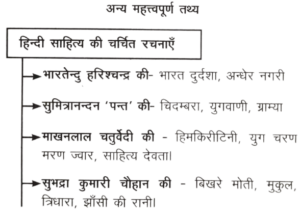 अन्य महत्त्वपूर्ण तथ्य
हिन्दी साहित्य की चर्चित रचनाएँ
भारतेन्दु हरिश्चन्द्र की- भारत दुर्दशा, अन्धेर नगरी
सुमित्रानन्दन 'पन्त' की- चिदम्बरा, युगवाणी, ग्राम्या
माखनलाल चतुर्वेदी की - हिमकिरीटिनी, युग चरण
मरण ज्वार, साहित्य देवता।
सुभद्रा कुमारी चौहान की - बिखरे मोती, मुकुल,
त्रिधारा, झाँसी की रानी।